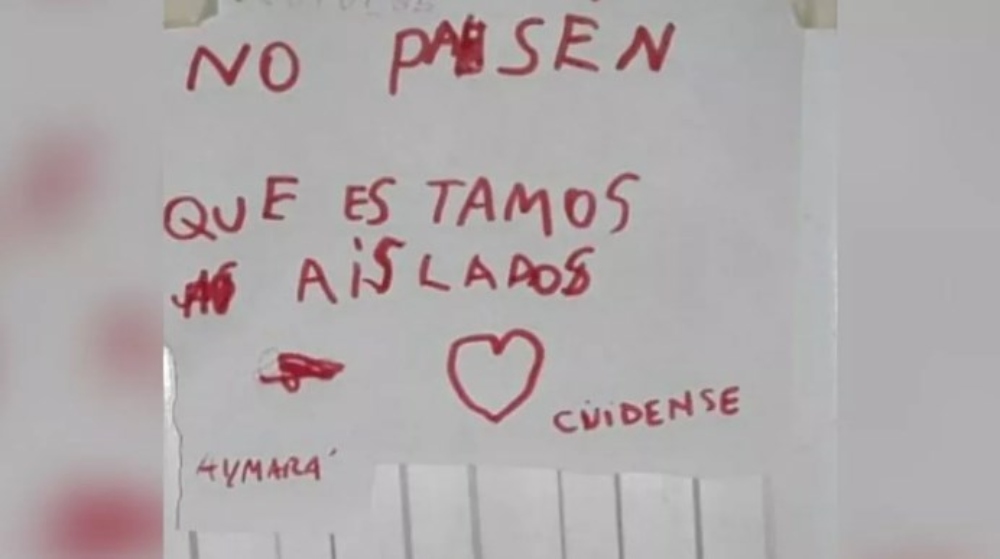 NO PASEN
QUE ESTAMOS
AISLADOS
CUIDENSE
AYMARA